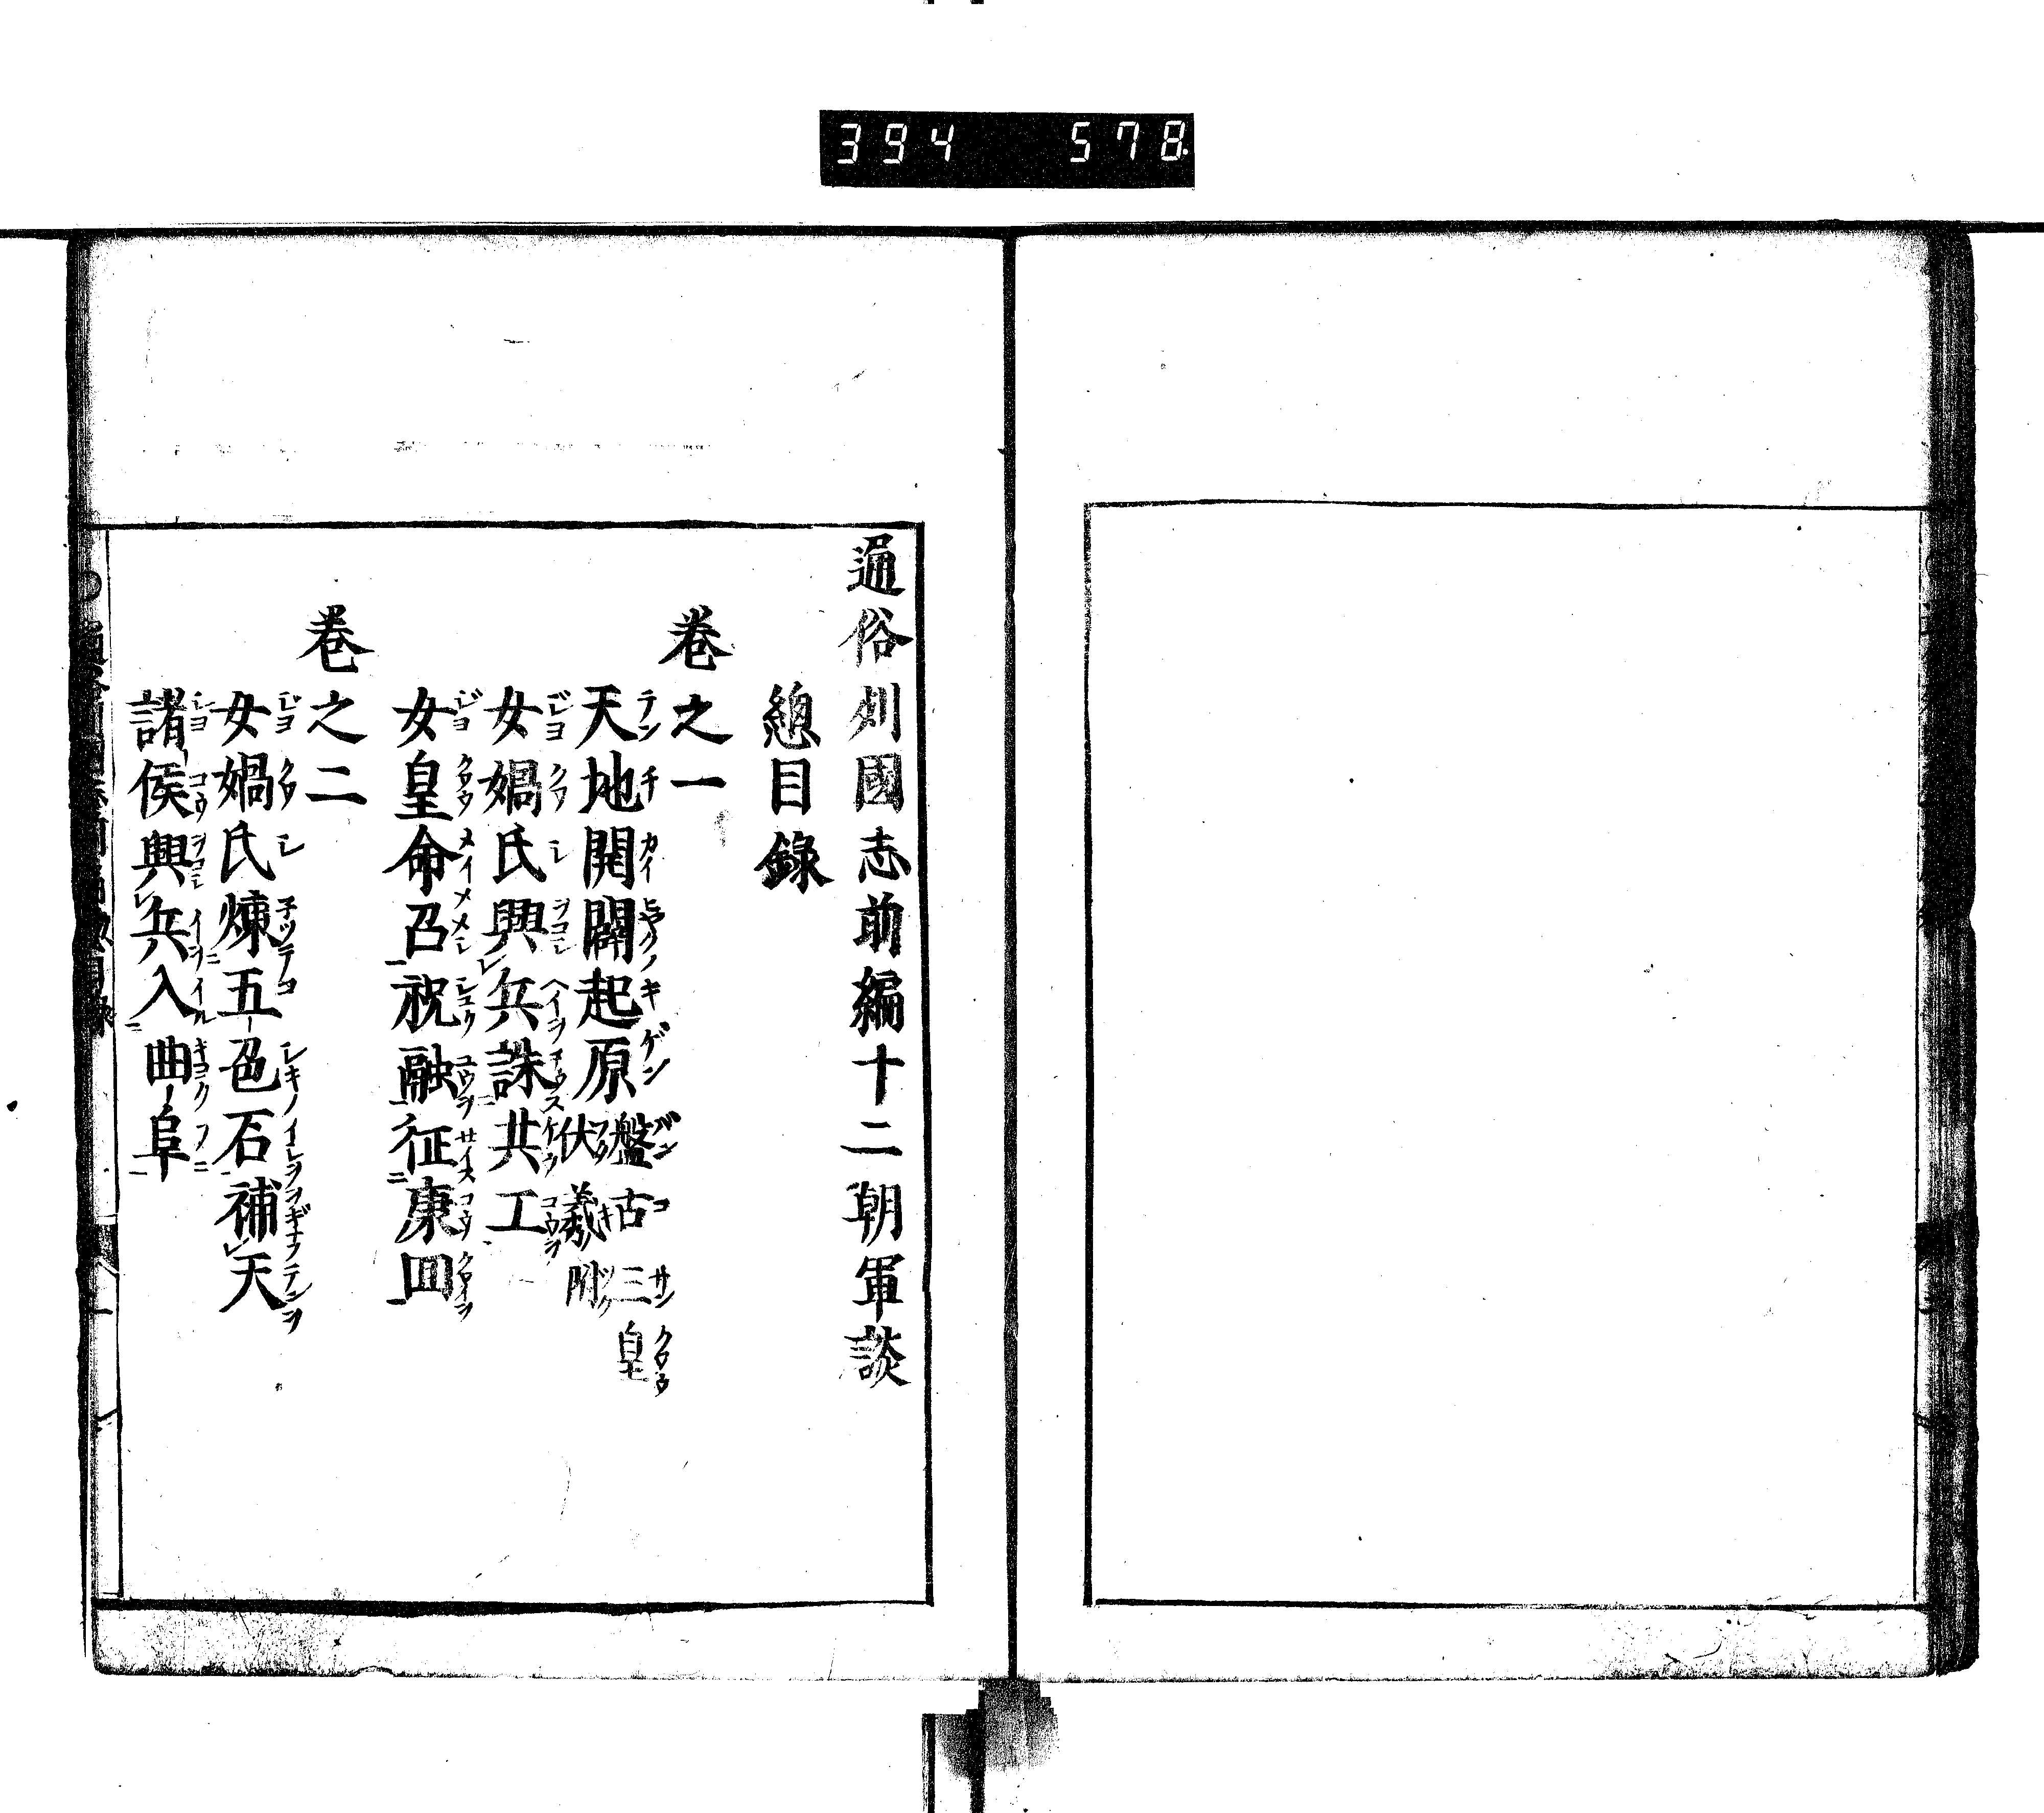 394 578
通俗列國志前編十二朝軍談
總目錄
卷之一
天地開闢起原 盤古三皇伏羲附
女媧氏興兵誅共工
女皇命召祝融征康回
卷之二
女媧氏煉五色石補天
諸侯興兵入曲阜